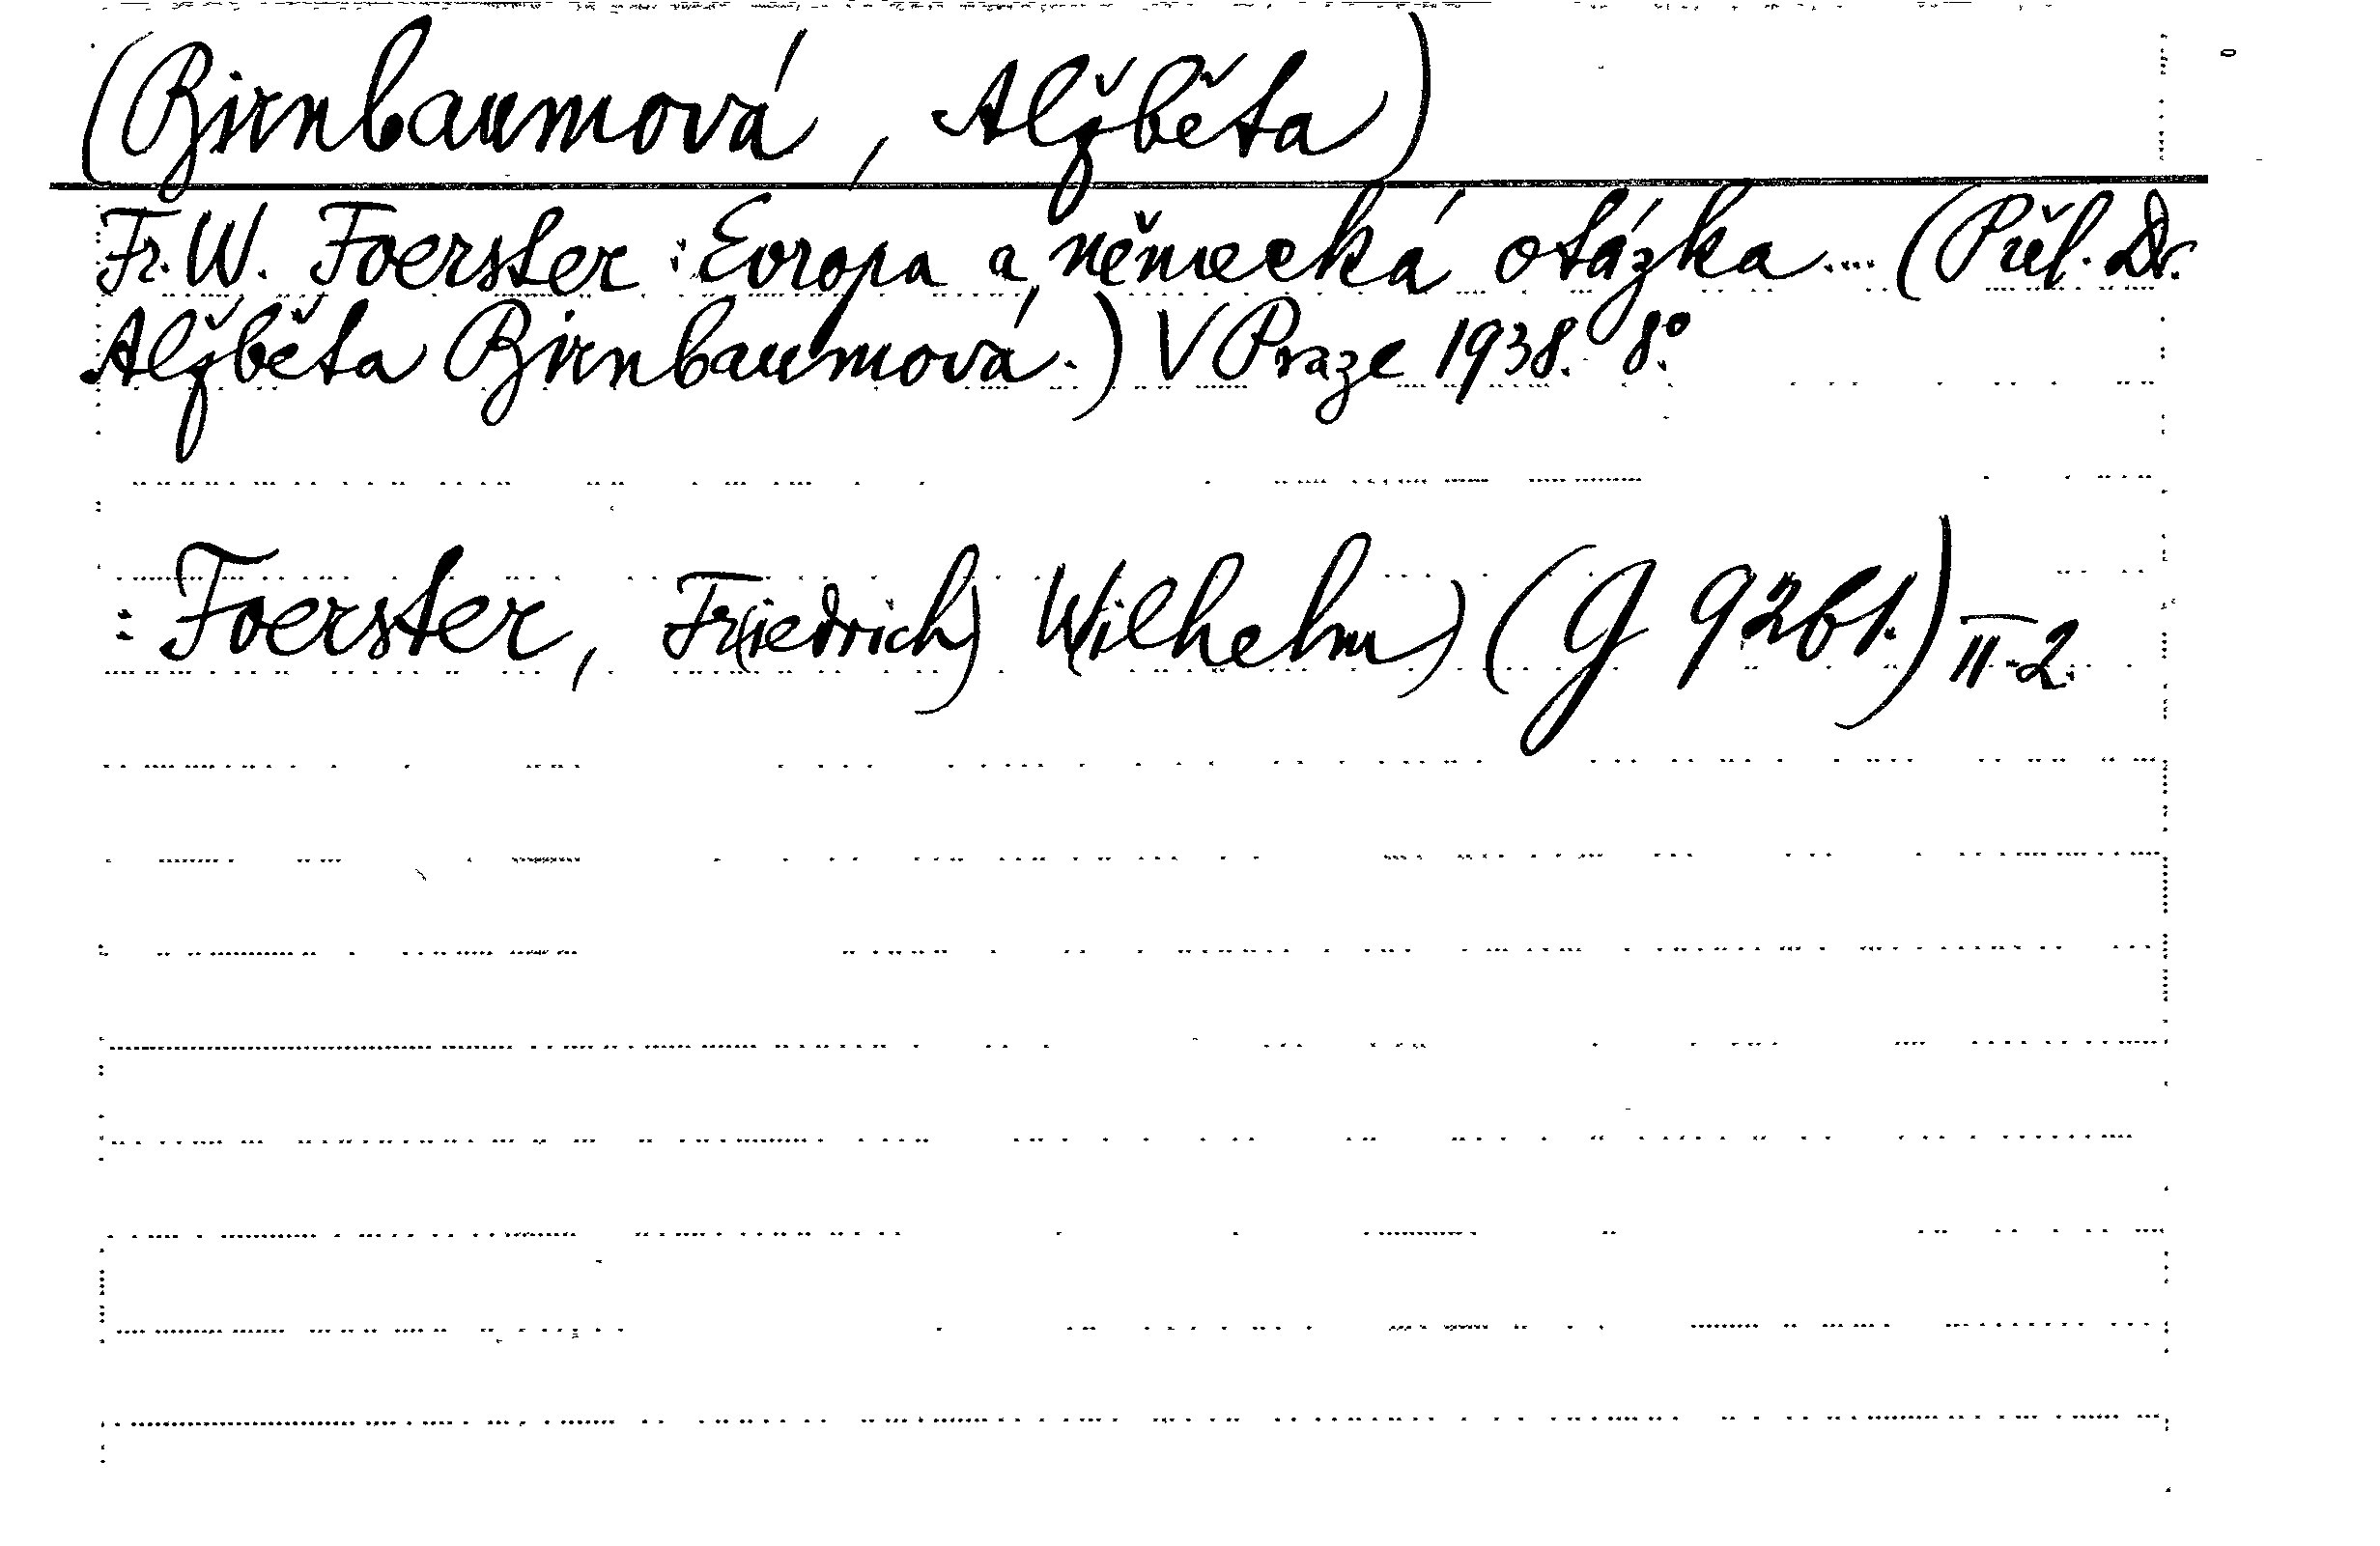 (Birnbaumová, Alžběta)
Fr. W. Foerster: Evropa a německá otázka... (Přel. Dr.
Alžběta Birnbaumová.) V Praze 1938. 8°.
: Foerster, Fr(iedrich) W(ilhelm) (G 9261.) II-2.